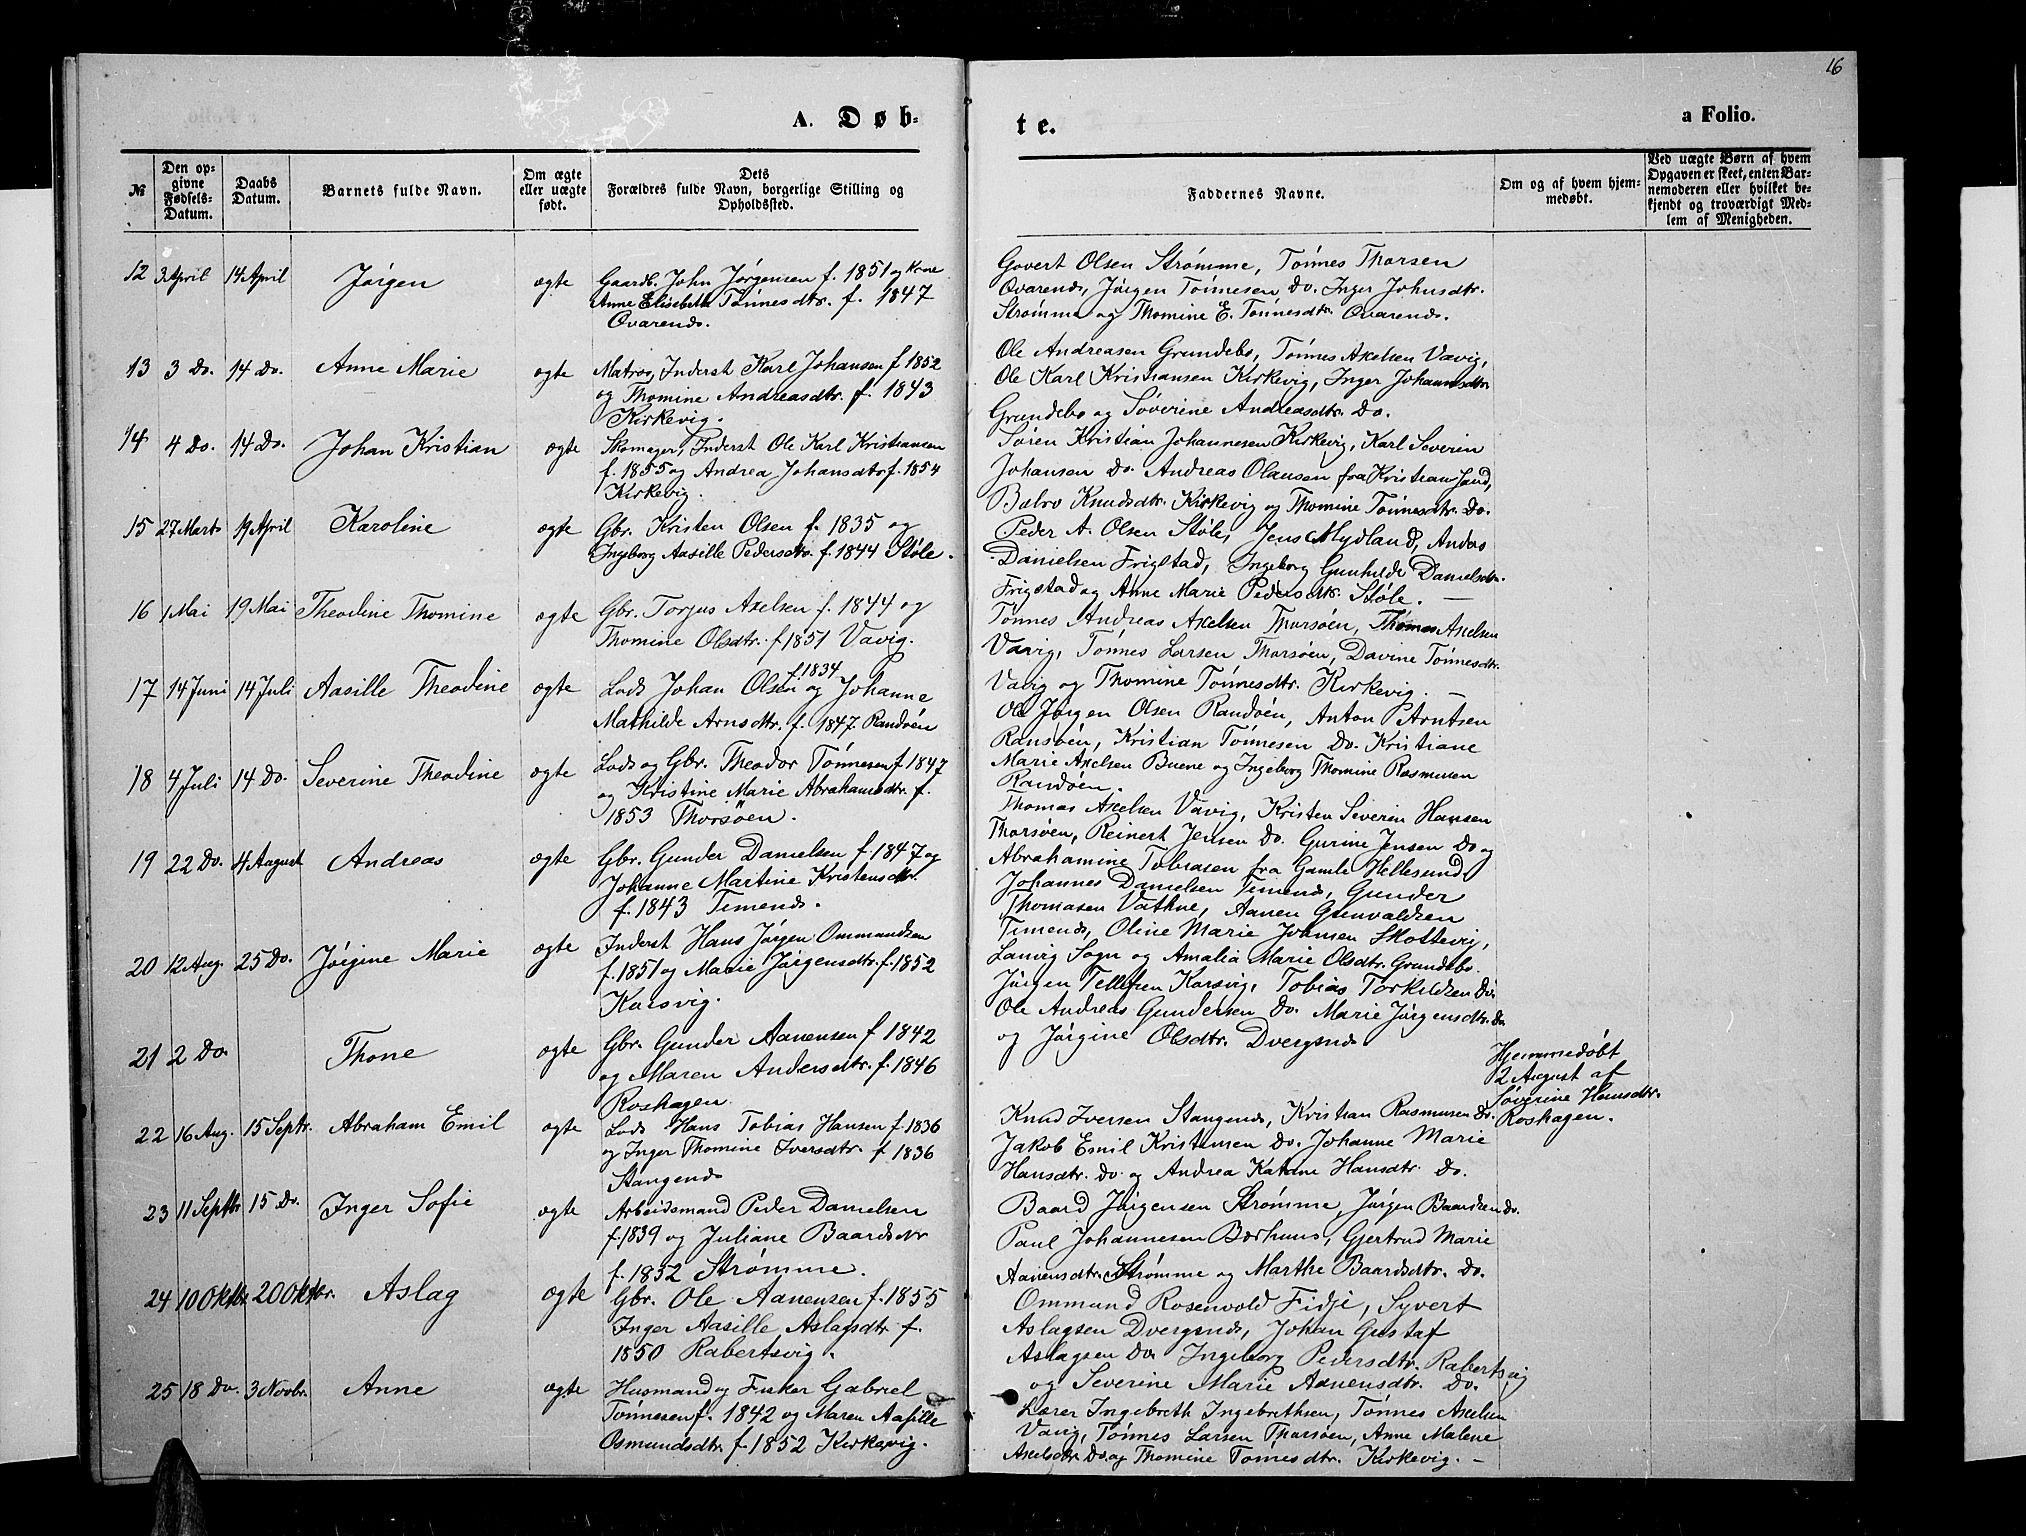 16
A. Døb-
te.
a Folio.
№
Den op-
givne
Fødsels-
Datum.
Daabs
Datum.
Barnets fulde Navn.
Om ægte
eller uægte
født.
Dets
Forældres fulde Navn, borgerlige Stilling og
Opholdssted.
Faddernes Navne.
Om og af hvem hjem-
medøbt.
Ved uægte Børn af hvem
Opgaven er skeet, enten Bar-
nemoderen eller hvilket be-
kjendt og troværdigt Med-
lem af Menigheden.
12 3 April 14 April Jørgen ægte
Gaardb. John Jørgensen f. 1851 og Kone
Anne Elisebeth Tønnesdtr. f. 1847
Ovarends.
Govert Olsen Strømme, Tønnes Thorsen
Ovarends, Jørgen Tønnesen Do. Inger Johnsdtr.
Strømme og Thomine E. Tønnesdtr. Ovarends.
13 3 Do. 14 Do. Anne Marie ægte
Matros, Inderst Karl Johansen f. 1852
og Thomine Andreasdtr. f. 1843
Kirkevig.
Ole Andreasen Grundebø, Tønnes Axelsen Vavig,
Ole Karl Kristiansen Kirkevig, Inger Johannesdtr.
Grundebø og Søverine Andreasdtr. Do.
14 4 Do. 14 Do. Johan Kristian ægte
Skomager, Inderst Ole Karl Kristiansen
f. 1855 og Andrea Johansdtr f. 1854
Kirkevig.
Søren Kristian Johannesen Kirkevig, Karl Severin
Johansen Do. Andreas Olausen fra Kristiansand,
Bælro Knudsdtr. Kirkevig og Thomine Tønnesdtr. Do.
15 27 Marts 19 April Karoline ægte
Gbr. Kristen Olsen f. 1835 og
Ingeborg Aasille Pedersdtr. f. 1844 Støle.
Peder A. Olsen Støle, Jens Mydland, Anders
Danielsen Frigstad, Ingeborg Gunhilde Danielsdtr.
Frigstad og Anne Marie Pedersdtr. Støle. —
16 1 Mai 19 Mai Theodine Thomine ægte
Gbr. Torjus Axelsen f. 1844 og
Thomine Olsdtr. f 1851 Vavig.
Tønnes Andreas Axelsen Thorsøen, Thomas Axelsen
Vavig, Tønnes Larsen Thorsøen, Davine Tønnesdtr.
Vavig og Thomine Tønnesdtr. Kirkevig. —
17 14 Juni 14 Juli Aasille Theodine ægte
f. 1834
Lods Johan Olsen og Johanne
Mathilde Arnsdtr. f. 1847. Randøen
Ole Jørgen Olsen Randøen, Anton Arntsen
Ransøen, Kristian Tønnesen Do. Kristiane
Marie Axelsen Buene og Ingeborg Thomine Rasmusen
Randøen.
18 4 Juli 14 Do. Severine Theodine ægte
Lods og Gbr. Theodor Tønnesen f 1847
og Kristine Marie Abrahamsdtr. f.
1853 Thorsøen.
Thomas Axelsen Vavig, Kristen Severin Hansen
Thorsøen, Reinert Jensen Do. Gurine Jensen Do og
Abrahamine Tobiasen fra Gamle Hillesund.
19 22 Do. 4 August Andreas ægte
Gbr. Gunder Danielsen f. 1847 og
Johanne Martine Kristensdtr.
f. 1843 Timends.
Johannes Danielsen Timends, Gunder
Thomasen Vathne, Aanen Gunvaldsen
Timends, Oline Marie Johnsen Skottevig,
Lanvig Sogn og Amalia Marie Olsdtr. Grundebø.
20 12 Aug. 25 Do. Jørgine Marie ægte
Inderst Hans Jørgen Ommundsen
f. 1851 og Marie Jørgensdtr. f. 1852
Korsvig.
Jørgen Tellefsen Korsvig, Tobias Torkildsen Do.
Ole Andreas Gundersen Do. Marie Jørgensdtr. Do.
og Jørgine Olsdtr. Dvergsnds
21 2 Do. Thone ægte
Gbr. Gunder Aanensen f. 1842
og Maren Andersdtr. f. 1846
Roshagen.
Hjemmedøbt
2 August af
Søverine Hansdtr.
Roshagen.
22 16 Aug. 15 Septr. Abraham Emil ægte
Lods Hans Tobias Hansen f. 1836
og Inger Thomine Iversdtr. f 1836
Stangends
Knud Iversen Stangends, Kristian Rasmusen Do.
Jakob Emil Kristensen Do. Johanne Marie
Hansdtr. Do. og Andrea Katrine Hansdtr. Do.
23 11 Septbr 15 Do. Inger Sofie ægte
Arbeidsmand Peder Danielsen
f. 1839 og Juliane Baardsdtr
f. 1852 Strømme.
Baard Jørgensen Strømme, Jørgen Baardsen Do.
Paul Johannesen Bærhuus, Gjertrud Marie
Aanensdtr. Strømme og Marthe Baardsdtr. Do.
24 10 Oktbr. 20 Oktbr. Aslag ægte
Gbr. Ole Aanensen f. 1855
Inger Aasille Aslagsdtr. f.
1850 Rabertsvig.
Ommund Rosenvold Fidje, Syvert
Aslagsen Dvergsnds, Johan Gustaf
Aslagsen Do. Ingeborg Pedersdtr. Rabertsvig
og Severine Marie Aanensdtr. Do.
25 18 Do. 3 Novbr. Anne ægte
Husmand og Fisker Gabriel
Tønnesen f. 1842 og Maren Aasille
Osmundsdtr. f. 1852 Kirkevig.
Lærer Ingebreth Ingebrethsen, Tønnes Axelsen
Vavig, Tønnes Larsen Thorsøen, Anne Malene
Axelsdtr. Do. og Thomine Tønnesdtr. Kirkevig. —